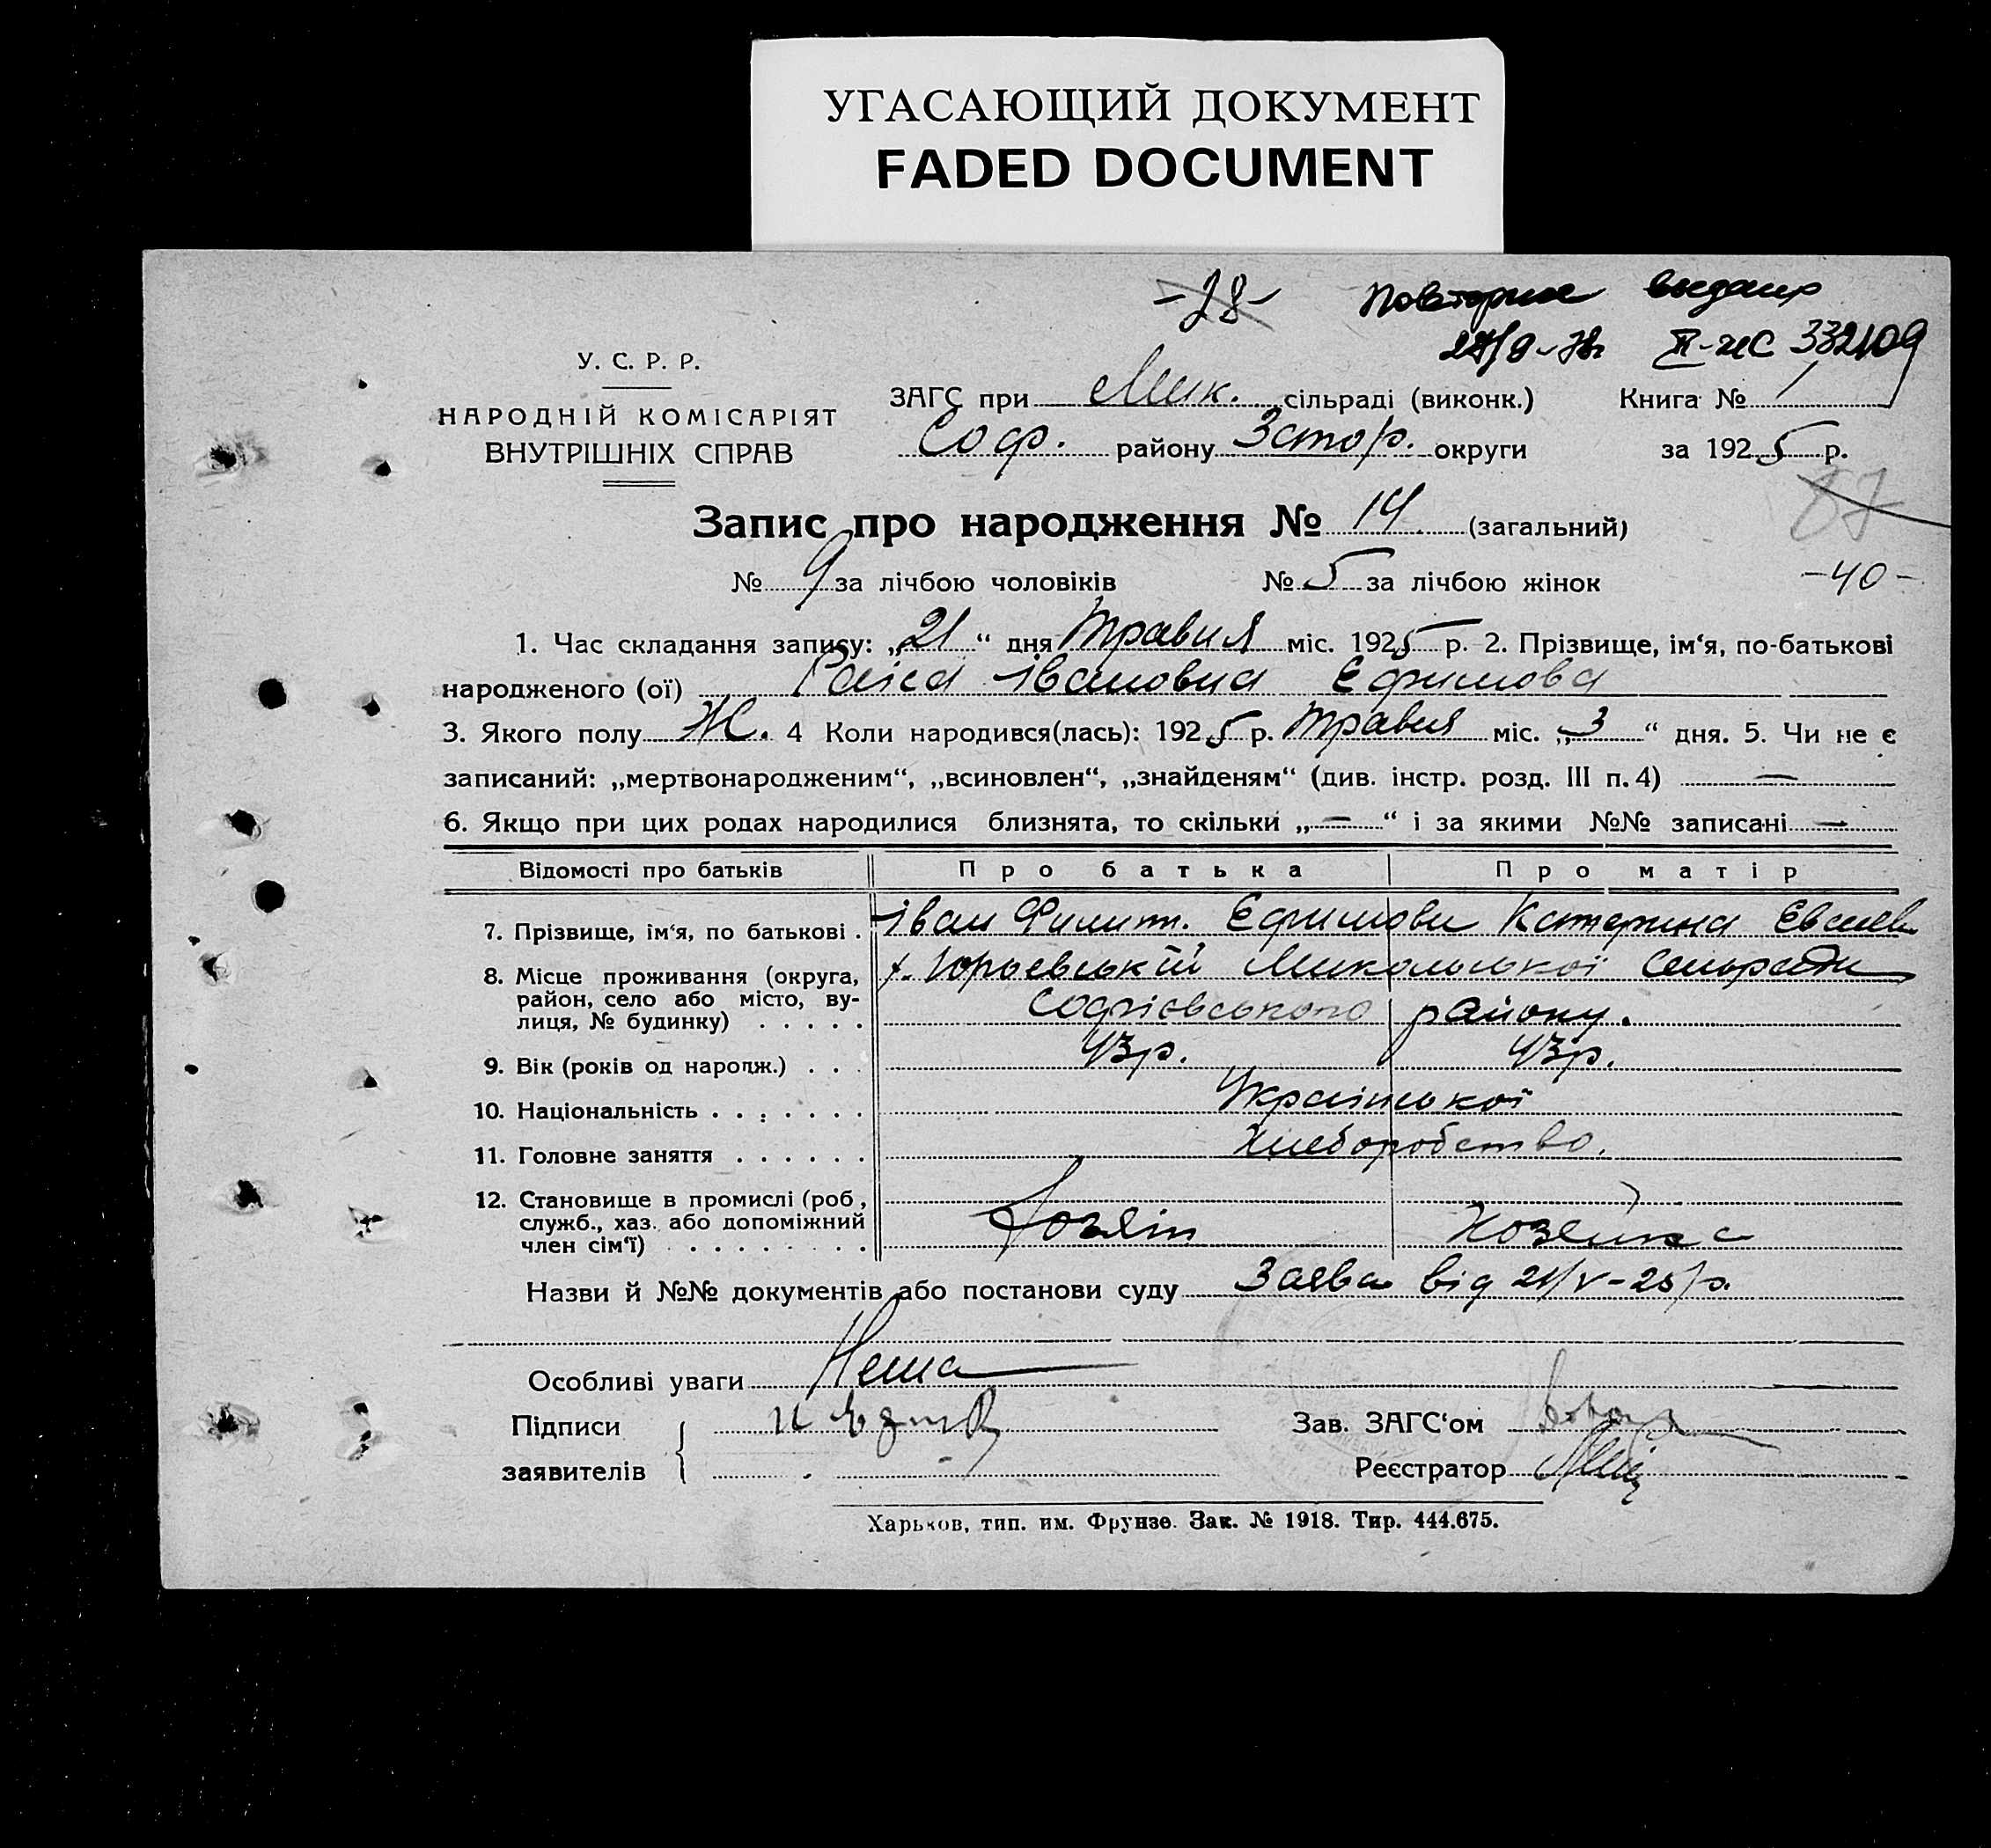 УГАСАЮЩИЙ ДОКУМЕНТ
FADED DOCUMENT
-28- Повторне выдано
ІІ-ЖС 332109
У. С. Р. Р.
НАРОДНІЙ КОМІСАРІЯТ
ВНУТРІШНІХ СПРАВ
ЗАГС при Мик. сільраді (виконк.) Книга № 1
Соф. району Запор. округи за 1925 р.
87
Запис про народження № 14 (загальний)
№ 9 за лічбою чоловіків № 5 за лічбою жінок -40-
1. Час складання запису: „21“ дня травня міс. 1925 р. 2. Прізвище, ім‘я, по-батькові
народженого (ої) Раіса Івановна Ефимова
3. Якого полу Ж. 4 Коли народився(лась): 1925 р. травня міс. „3“ дня. 5. Чи не є
записаний: „мертвонародженим“, „всиновлен“, „знайденям“ (див. інстр. розд. III п. 4) —
6. Якщо при цих родах народилися близнята, то скільки „—“ і за якими №№ записані —
Відомості про батьків Про батька Про матір
7. Прізвище, ім‘я, по батькові . Іван Филип. Ефимови Катерина
8. Місце проживання (округа, х. Юрьевський Микольської сельради
район, село або місто, ву-
лиця, № будинку) . . . . . Софієвського району.
9. Вік (років од народж.) . . . 43р. 43р.
10. Національність . . . . . . . Української
11. Головне заняття . . . . . . Хлеборобство.
12. Становище в промислі (роб,
служб., хаз. або допоміжний Хозяін Хозяйка
член сім‘ї) . . . . . . . . .
Назви й №№ документів або постанови суду Заява від 21/V-25 р.
Особливі уваги Нема
Підписи Зав. ЗАГС‘ом
заявителів Реєстратор
Харьков, тип. им. Фрунзе. Зак. № 1918. Тир. 444.675.